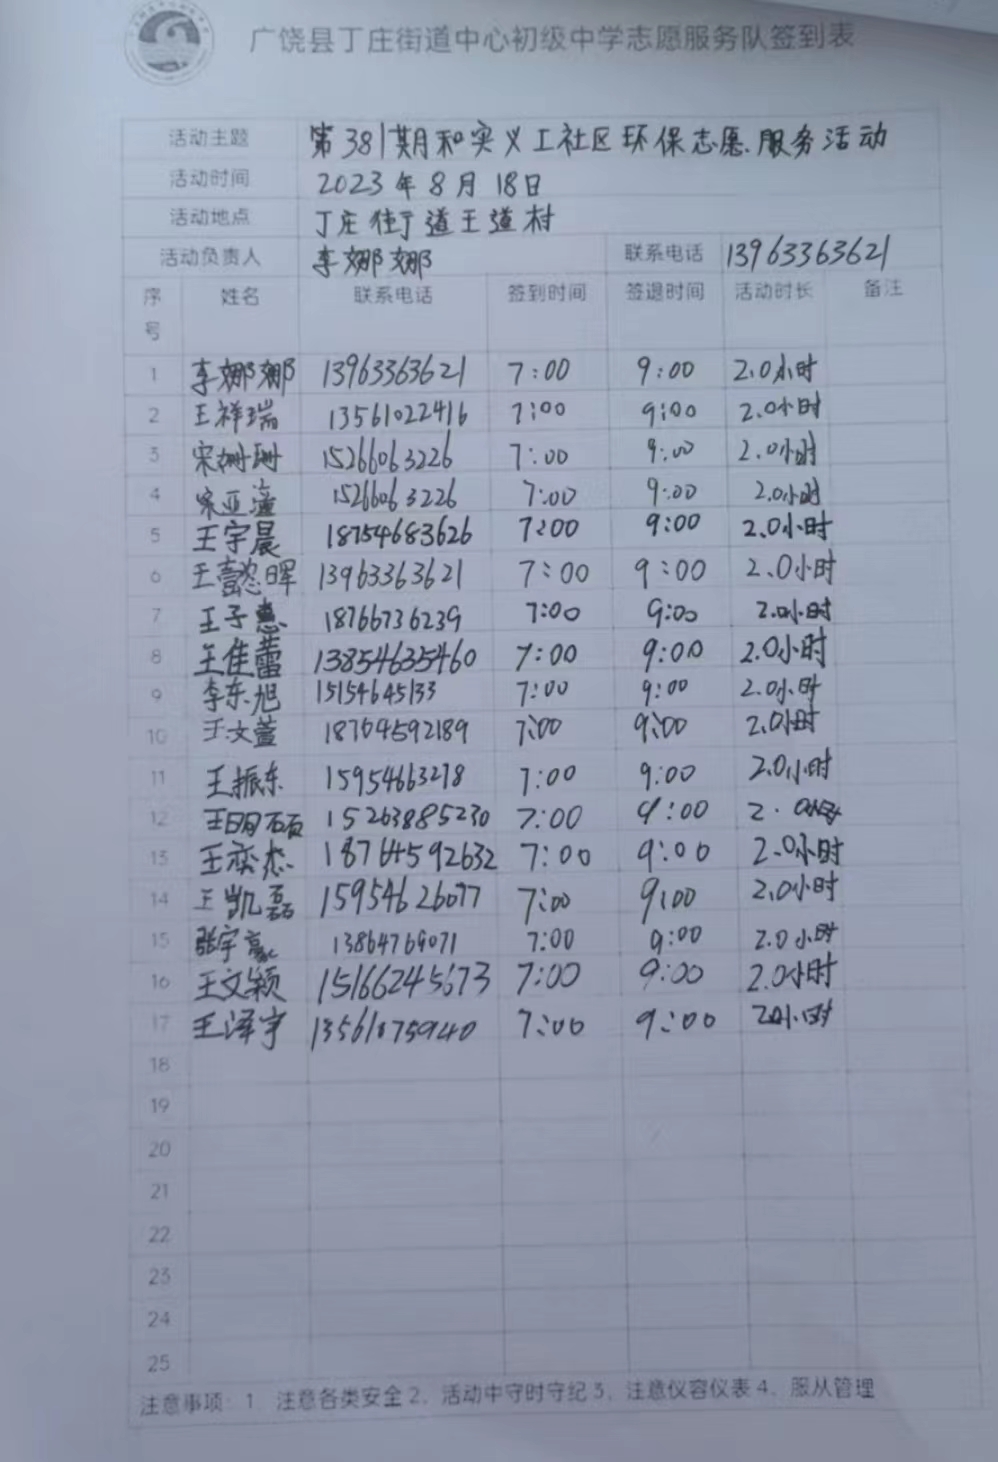 广饶县丁庄街道中心初级中学志愿服务队签到表
活动主题 第381期和实义工社区环保志愿服务活动
活动时间 2023年8月18日
活动地点 丁庄街道王道村
活动负责人 李娜娜 联系电话 13963363621
序号 姓名 联系电话 签到时间 签退时间 活动时长 备注
1 李娜娜 13963363621 7:00 9:00 2.0小时
2 王祥瑞 13561022416 7:00 9:00 2.0小时
3 宋姗珊 15266063226 7:00 9:00 2.0小时
4 宋亚潼 15266063226 7:00 9:00 2.0小时
5 王宇晨 18754683626 7:00 9:00 2.0小时
6 王懿晖 13963363621 7:00 9:00 2.0小时
7 王子惠 18766736239 7:00 9:00 2.0小时
8 王佳蕾 13854635460 7:00 9:00 2.0小时
9 李东旭 15154645133 7:00 9:00 2.0小时
10 王文萱 18764592189 7:00 9:00 2.0小时
11 王振东 15954663278 7:00 9:00 2.0小时
12 王明硕 15263885230 7:00 9:00 2.0小时
13 王奕杰 18764592632 7:00 9:00 2.0小时
14 王凯磊 15954626077 7:00 9:00 2.0小时
15 张宇豪 13864769071 7:00 9:00 2.0小时
16 王文颖 15166245673 7:00 9:00 2.0小时
17 王泽宇 13561875940 7:00 9:00 2.0小时
18
19
20
21
22
23
24
25
注意事项：1、注意各类安全 2、活动中守时守纪 3、注意仪容仪表 4、服从管理